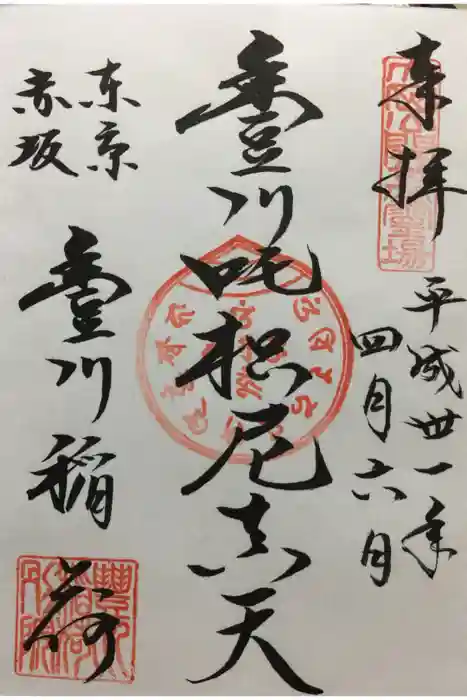 奉拝
平成卅一年
四月六日
豊川吒枳尼真天
東京
赤坂
豊川稲荷